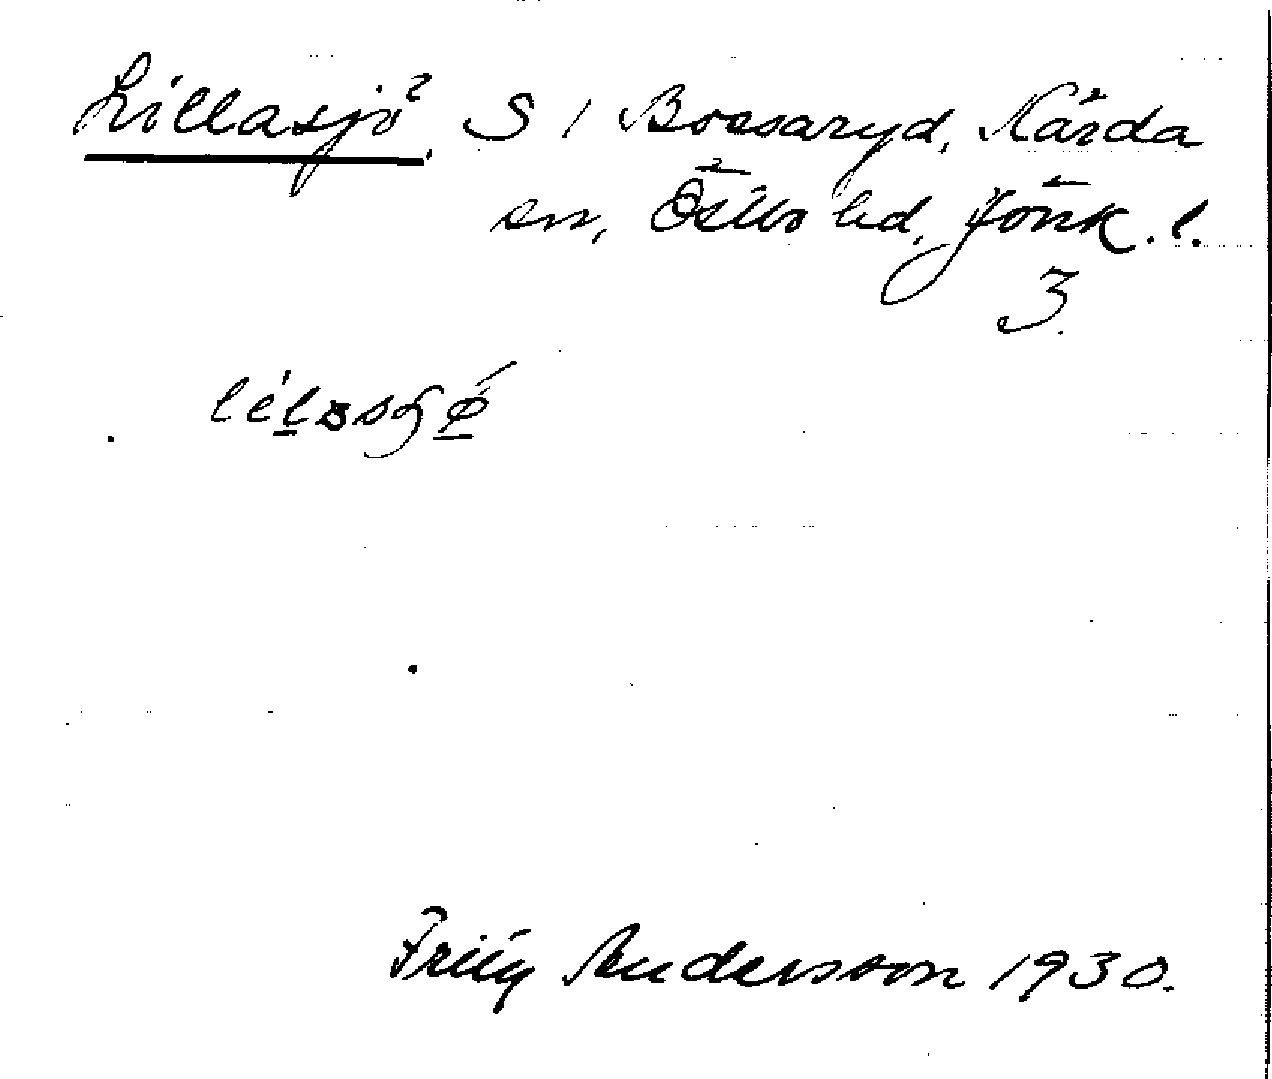 Lillasjö, S / Bossaryd, Kärda
sn, Östbo hd, Jönk. l.
3.
Fritz Andersson 1930.